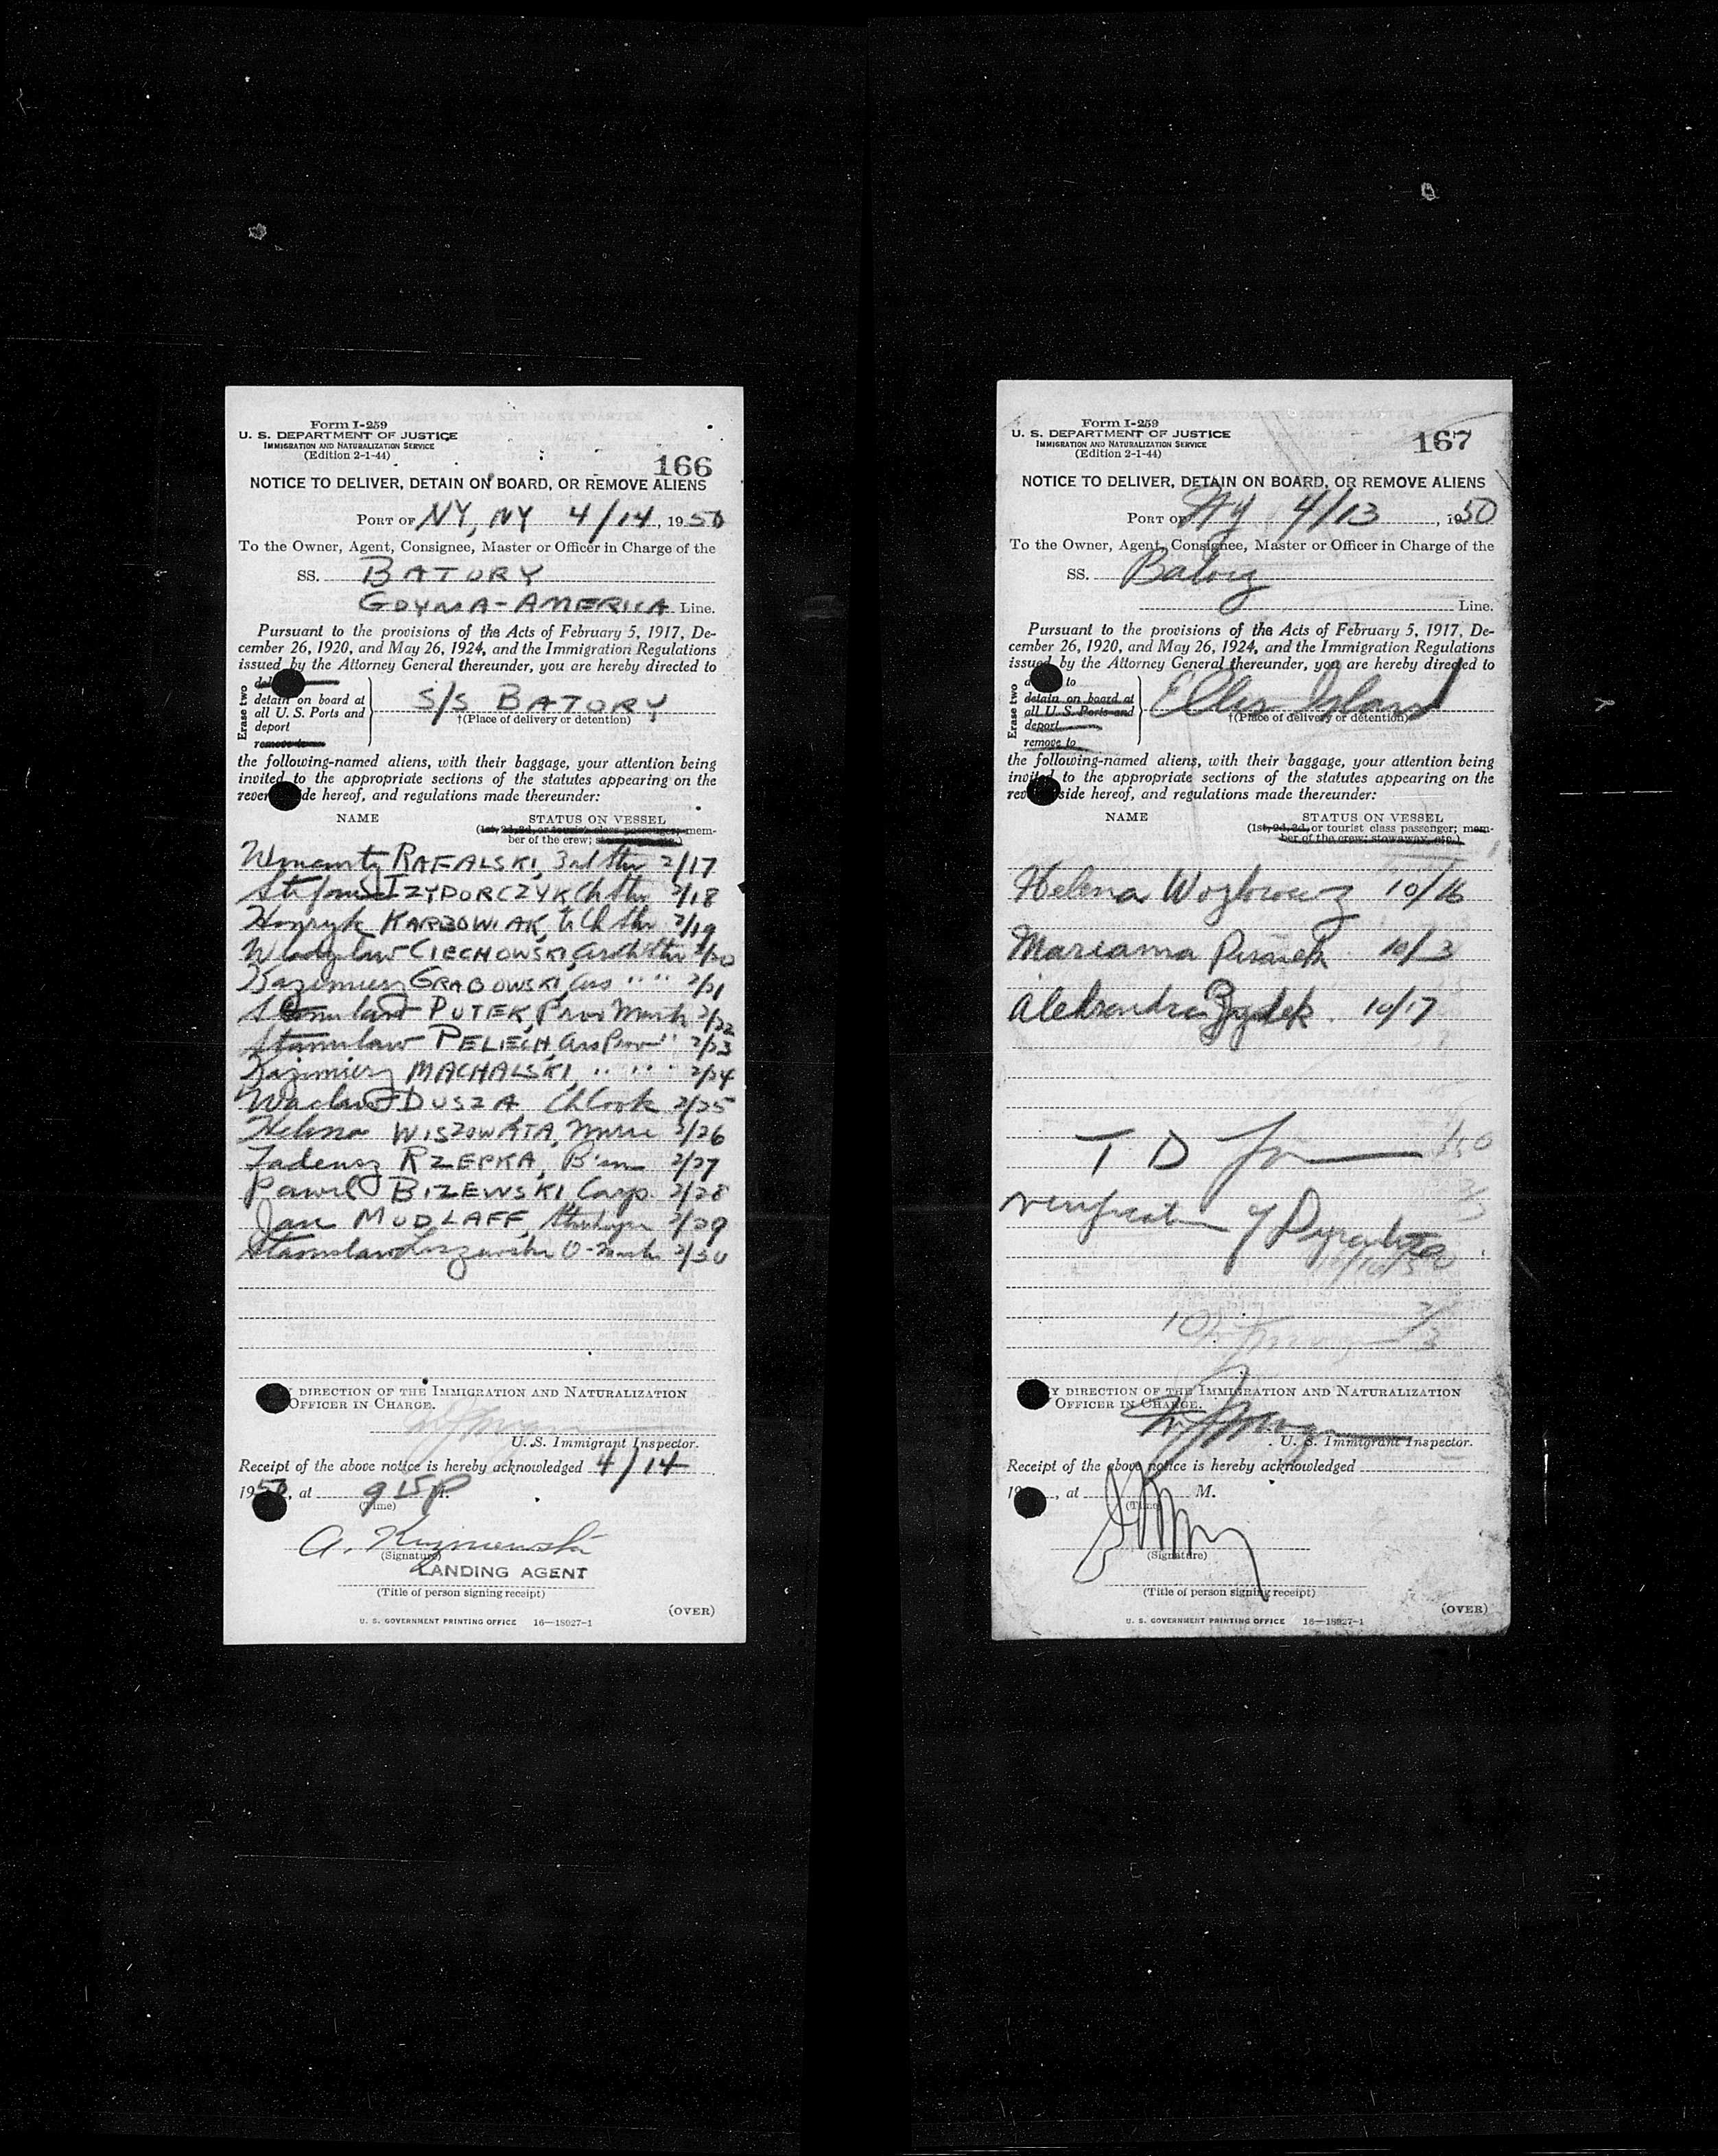 Form I-259
U. S. DEPARTMENT OF JUSTICE
IMMIGRATION AND NATURALIZATION SERVICE
(Edition 2-1-44)
166
NOTICE TO DELIVER, DETAIN ON BOARD, OR REMOVE ALIENS
PORT OF NY, NY 4/14, 1950
To the Owner, Agent, Consignee, Master or Officer in Charge of the
SS. BATORY
GDYNIA-AMERICA Line.
Pursuant to the provisions of the Acts of February 5, 1917, De-
cember 26, 1920, and May 26, 1924, and the Immigration Regulations
issued by the Attorney General thereunder, you are hereby directed to
Erase two
detain on board at
all U. S. Ports and
deport
remove to
S/S BATORY
†(Place of delivery or detention)
the following-named aliens, with their baggage, your attention being
invited to the appropriate sections of the statutes appearing on the
rever de hereof, and regulations made thereunder:
NAME STATUS ON VESSEL
(1st, 2d, 3d, or tourist class passenger; mem-
ber of the crew; stowaway, etc.)
RAFALSKI, 3rd Stw 2/17
IZYDORCZYK Ch Stw 2/18
Henryk KARBOWIAK, Ch Stw 2/19
CIECHOWSKI, 2/20
Kazimierz GRABOWSKI, Ass " " 2/21
PUTEK, Prov 2/22
Stanislaw PELIECH, Ass Prov " 2/23
Kazimierz MACHALSKI, " " " 2/24
Waclaw DUSZA Ch Cook 2/25
Helena WISZOWATA, Nurse 2/26
Tadeusz RZEPKA, B'm 2/27
Pawel BIZEWSKI Carp. 2/28
Jan MUDLAFF, 2/29
Stanislaw 2/30
DIRECTION OF THE IMMIGRATION AND NATURALIZATION
OFFICER IN CHARGE.
U. S. Immigrant Inspector.
Receipt of the above notice is hereby acknowledged 4/14
1950, at 915P M.
(Time)
A.
(Signature)
LANDING AGENT
(Title of person signing receipt)
(OVER)
U. S. GOVERNMENT PRINTING OFFICE 16—18927-1
Form I-259
U. S. DEPARTMENT OF JUSTICE
IMMIGRATION AND NATURALIZATION SERVICE
(Edition 2-1-44)
167
NOTICE TO DELIVER, DETAIN ON BOARD, OR REMOVE ALIENS
PORT OF NY 4/13, 1950
To the Owner, Agent, Consignee, Master or Officer in Charge of the
SS. Batory
Line.
Pursuant to the provisions of the Acts of February 5, 1917, De-
cember 26, 1920, and May 26, 1924, and the Immigration Regulations
issued by the Attorney General thereunder, you are hereby directed to
Erase two
to
detain on board at
all U. S. Ports and
deport
remove to
Ellis Island
†(Place of delivery or detention)
the following-named aliens, with their baggage, your attention being
invited to the appropriate sections of the statutes appearing on the
rev side hereof, and regulations made thereunder:
NAME STATUS ON VESSEL
(1st, 2d, 3d, or tourist class passenger; mem-
ber of the crew; stowaway, etc.)
Helena 10/16
Marianna 10/3
Aleksandra 10/17
T D
verification of
BY DIRECTION OF THE IMMIGRATION AND NATURALIZATION
OFFICER IN CHARGE.
U. S. Immigrant Inspector.
Receipt of the above notice is hereby acknowledged
19 , at M.
(Time)
(Signature)
(Title of person signing receipt)
(OVER)
U. S. GOVERNMENT PRINTING OFFICE 16—18927-1